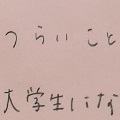 つらいこと
大学生にな